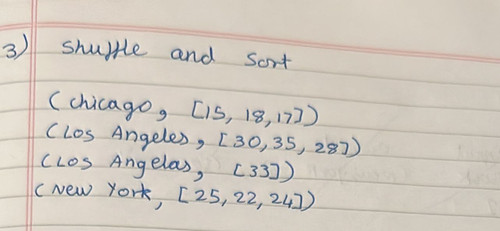 3) Shuffle and Sort
(Chicago, [15, 18, 17])
(Los Angeles, [30, 35, 28])
(Los Angelas, [33])
(New York, [25, 22, 24])